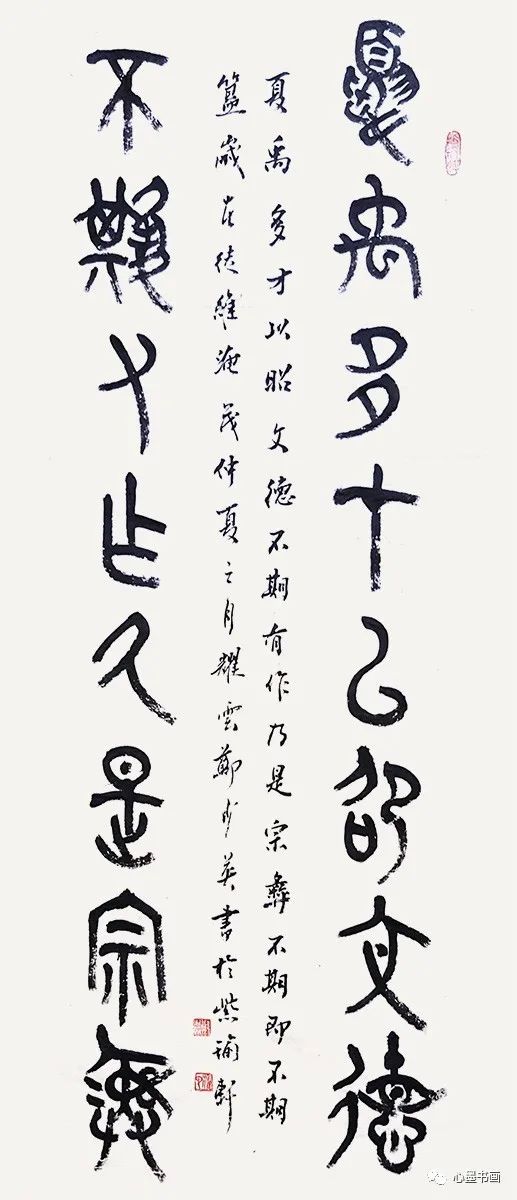 夏禹多才以昭文德
夏禹多才以昭文德不期有作乃是宗彝不期即不期
簋歲在徒維淹茂仲夏之月耀雲鄭少英書於紫瑜軒
不期有作乃是宗彝
心墨书画